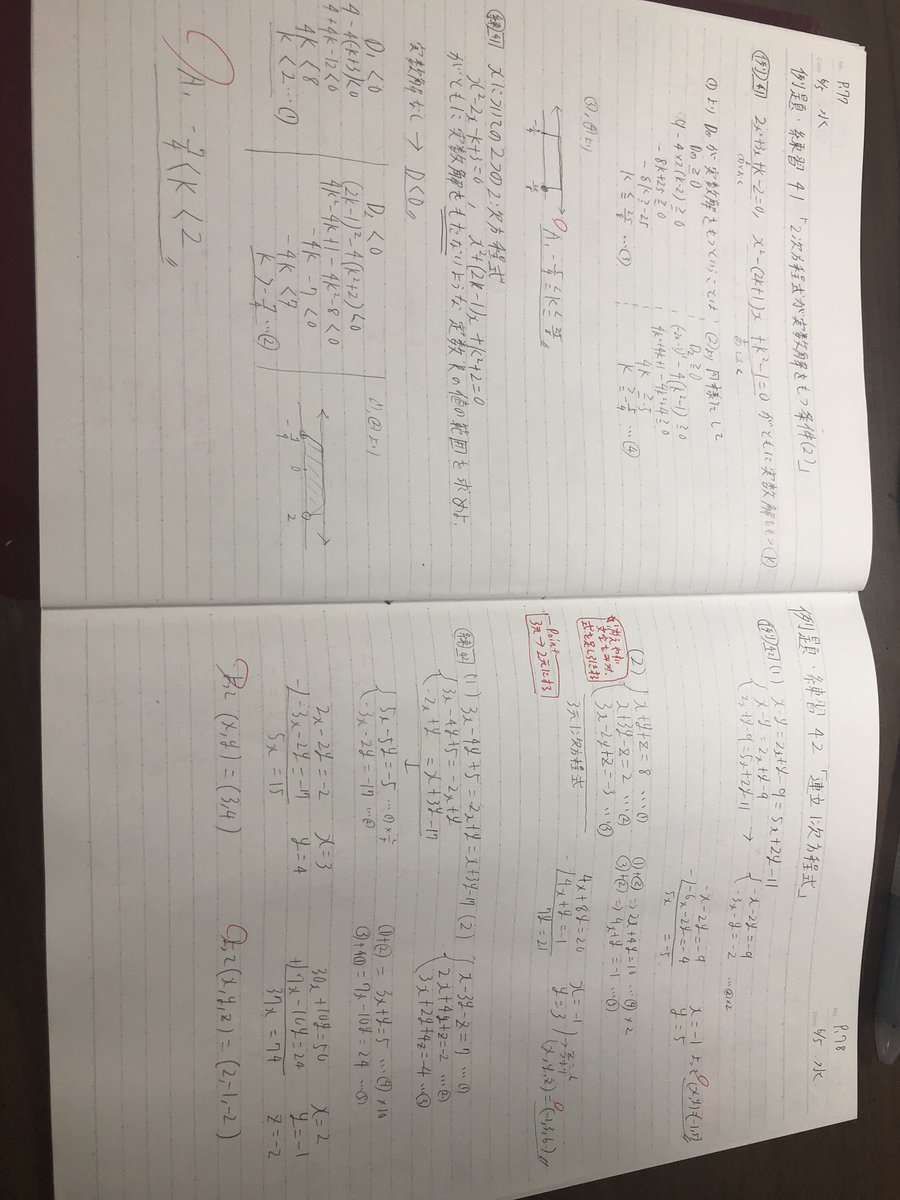 P.77
6/5 水
例題・練習 41 「2次方程式が実数解をもつ条件(2)」
例題41 2x²+3x+k-2=0, x²-(2k+1)x+k²-1=0 がともに実数解をもつ k
D₁≧0
9-4×2(k-2)≧0
-8k+25≧0
-8k≧-25
k≦25/8 …③
②より 同様にして
D₂≧0
4k≧-5
k≧-5/4 …④
③,④より
A, -5/4≦k≦25/8
練41 xについての2つの2次方程式
x²-2x-k+3=0, x²+(2k-1)x+k²+2=0
がともに実数解をもたないような定数kの値の範囲を求めよ.
実数解なし → D<0。
D₁<0
4-4(-k+3)<0
4+4k-12<0
4k<8
k<2 …①
D₂<0
(2k-1)²-4(k²+2)<0
4k²-4k+1-4k²-8<0
-4k-7<0
-4k<7
k>-7/4 …②
①,②より
-7/4 0 2
A, -7/4<k<2
P.78
6/5 水
例題・練習 42 「連立1次方程式」
例題42 (1) x-y=2x+y-9=5x+2y-11
{x-y=2x+y-9
2x+y-9=5x+2y-11
→ {-x-2y=-9
-3x-y=-2 …②×2
-x-2y=-9
-6x-2y=-4
5x=-5
x=-1
y=5
(x,y)=(-1,5)
(2) {x+y+z=8 …①
x+3y-z=2 …②
3x-2y+z=-3 …③
3元1次方程式
point
3元→2元にする
①+② ⇒ 2x+4y=10 …④×2
③+② ⇒ 4x+y=-1 …⑤
4x+8y=20
4x+y=-1
7y=21
x=-1
y=3
(x,y,z)=(-1,3,6)
練42 (1) 3x-4y+5=-2x+y=x+3y-17
{3x-4y+5=-2x+y
-2x+y=x+3y-17
↓
{5x-5y=-5 …①×2/5
-3x-2y=-17 …②
2x-2y=-2
-3x-2y=-17
5x=15
x=3
y=4
(x,y)=(3,4)
(2) {x-3y-z=7 …①
2x+4y+z=-2 …②
3x+2y+4z=-4 …③
①+② = 3x+y=5 …④×10
③+4① = 7x-10y=24 …⑤
30x+10y=50
7x-10y=24
37x=74
x=2
y=-1
z=-2
(x,y,z)=(2,-1,-2)